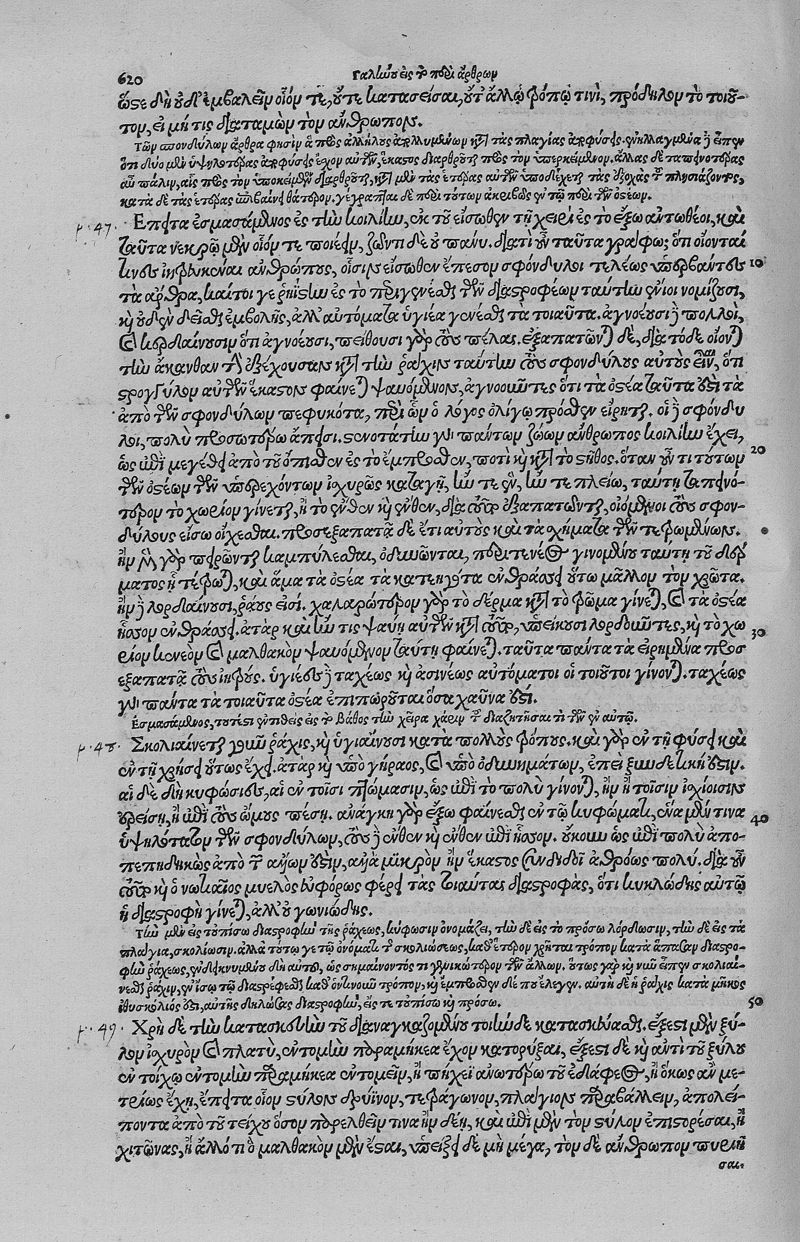 620 Γαληνοῦ εἰς τὸ περὶ ἄρθρων
ὥστε δὴ οὐδ' ἐμβαλεῖν οἷόν τε, οὔτε κατασείσαι, οὔτ' ἄλλῳ τρόπῳ τινὶ, πρόδηλον τὸ τοιοῦ-
τον, εἰ μή τις διαταμὼν τὸν ἄνθρωπον.
Τῶν σπονδύλων ἄρθρα φησὶν τὰς πλαγίας ἀποφύσεις.
ὅτι δύο μὲν ὑψηλοτέρας ἀποφύσεις ἔχον αὐτῶν, ἕκαστος διαρθροῦται πρὸς τὸν ὑπερκείμενον. ἄλλας δὲ ταπεινοτέρας
αὖ πάλιν, αἷς πρὸς τὸν ὑποκείμενον διαρθροῦται, καὶ κατὰ μὲν τὰς ἑτέρας αὐτῶν ὑποδέχεται τὰς ἐξοχὰς τοῦ πλησιάζοντος,
κατὰ δὲ τὰς ἑτέρας ἐπιβαίνει θατέρου. γέγραπται δὲ περὶ τούτων ἀκριβῶς ἐν τῷ περὶ τῶν ὀστέων.
μ. 47. Ἔπειτα ἐσμασάμενος ἐς τὴν κοιλίην, ἐκ τοῦ εἴσωθεν τῇ χειρὶ ἐς τὸ ἔξω ἀντωθέοι, καὶ
ταῦτα νεκρῷ μὲν οἷόν τε ποιέειν, ζῶντι δὲ οὐ πάνυ. διὰ τί οὖν ταῦτα γράφω; ὅτι οἴονταί
τινες ἰητρευκέναι ἀνθρώπους, οἷσιν εἴσωθεν ἔπεσον σφόνδυλοι τελέως ὑπερβάντες 10
τὰ ἄρθρα, καίτοι γε ῥηΐστην ἐς τὸ περιγενέσθαι τῶν διαστροφέων ταύτην ἔνιοι νομίζουσι,
καὶ οὐδὲν δεῖσθαι ἐμβολῆς, ἀλλ' αὐτόματα ὑγιέα γενέσθαι τὰ τοιαῦτα. ἀγνοέουσι δὲ πολλοὶ,
καὶ κερδαίνουσιν ὅτι ἀγνοέουσι, πείθουσι γὰρ τοὺς πέλας. ἐξαπατῶνται δὲ, διὰ τόδε οἴονται
τὴν ἄκανθαν τὴν ἐξέχουσαν κατὰ τὴν ῥάχιν ταύτην τοὺς σφονδύλους αὐτοὺς εἶναι, ὅτι
στρογγύλον αὐτῶν ἕκαστον φαίνεται ψαυόμενον, ἀγνοοῦντες ὅτι τὰ ὀστέα ταῦτά ἐστι τὰ
ἀπὸ τῶν σφονδύλων πεφυκότα, περὶ ὧν ὁ λόγος ὀλίγῳ πρόσθεν εἴρηται. οἱ δὲ σφόνδυ
λοι, πολὺ προσωτέρω ἄπεισι. στενοτάτην γὰρ πάντων ζώων ἄνθρωπος κοιλίην ἔχει,
ὡς ἐπὶ μεγέθει ἀπὸ τοῦ ὄπισθεν ἐς τὸ ἔμπροσθεν, ποτὶ καὶ κατὰ τὸ στῆθος. ὅταν οὖν τι τούτων 20
τῶν ὀστέων τῶν ὑπερεχόντων ἰσχυρῶς καταγῇ, ἤν τε ἓν, ἤν τε πλείω, ταύτῃ ταπεινό-
τερον τὸ χωρίον γίνεται, ἢ τὸ ἔνθεν καὶ ἔνθεν, διὰ τοῦτο ἐξαπατῶνται, οἰόμενοι τοὺς σφον-
δύλους εἴσω οἴχεσθαι. προσεξαπατᾷ δὲ ἔτι αὐτοὺς καὶ τὰ σχήματα τῶν τετρωμένων.
ἢν μὲν γὰρ πειρῶνται καμπύλεσθαι, ὀδυνῶνται, περιτενέος γινομένου ταύτῃ τοῦ δέρ
ματος ᾗ τέτρωται, καὶ ἅμα τὰ ὀστέα τὰ κατεηγότα ἐνθράσσει οὕτω μᾶλλον τὸν χρῶτα.
ἢν δὲ λορδαίνωσι, ῥᾴους εἰσί. χαλαρώτερον γὰρ τὸ δέρμα κατὰ τὸ τρῶμα γίνεται, καὶ τὰ ὀστέα
ἧσσον ἐνθράσσει. ἀτὰρ καὶ ἤν τις ψαύῃ αὐτῶν κατὰ τοῦτο, ὑπείκουσι λορδοῦντες, καὶ τὸ χω 30
ρίον κενεὸν καὶ μαλθακὸν ψαυόμενον ταύτῃ φαίνεται. ταῦτα πάντα τὰ εἰρημένα προσ
εξαπατᾷ τοὺς ἰητρούς. ὑγιέες δὲ ταχέως καὶ ἀσινέως αὐτόματοι οἱ τοιοῦτοι γίνονται. ταχέως
γὰρ πάντα τὰ τοιαῦτα ὀστέα ἐπιπωροῦται ὅσα χαῦνά ἐστι.
Ἐσμασάμενος, τουτέστι ἐντιθεὶς εἰς τὸ βάθος τὴν χεῖρα χάριν τοῦ διαζητῆσαί τι τῶν ἐν αὐτῷ.
μ. 48. Σκολιαίνεται γε μὴν ῥάχις, καὶ ὑγιαίνουσι κατὰ πολλοὺς τρόπους. καὶ γὰρ ἐν τῇ φύσει καὶ
ἐν τῇ χρήσει οὕτως ἔχει. ἀτὰρ καὶ ὑπὸ γήραος, καὶ ὑπὸ ὀδυνημάτων, ἐπεὶ ξυνδετική ἐστιν.
αἱ δὲ δὴ κυφώσιες, αἱ ἐν τοῖσι πτώμασιν, ὡς ἐπὶ τὸ πολὺ γίνονται, ἢν ἢ τοῖσιν ἰσχίοισιν
ἐρείσῃ, ἢ ἐπὶ τοὺς ὤμους πέσῃ. ἀνάγκη γὰρ ἔξω φαίνεσθαι ἐν τῷ κυφώματι, ἕνα μέν τινα 40
ὑψηλότατον τῶν σφονδύλων, τοὺς δὲ ἔνθεν καὶ ἔνθεν ἐπὶ ἧσσον. οὔκουν ὡς ἐπὶ πολὺ ἀπο-
πεπηδηκὼς ἀπὸ τῶν ἄλλων ἐστὶν, ἀλλὰ μικρὸν ἢν ἕκαστος συνδιδοῖ ἀθρόως πολύ. διὰ οὖν
τοῦτο καὶ ὁ νωτιαῖος μυελὸς εὐφόρως φέρει τὰς τοιαύτας διαστροφὰς, ὅτι κυκλώδης αὐτῷ
ἡ διαστροφὴ γίνεται, ἀλλ' οὐ γωνιώδης.
Τὴν μὲν εἰς τοὐπίσω διαστροφὴν τῆς ῥάχεως, κύφωσιν ὀνομάζει, τὴν δὲ εἰς τὸ πρόσω λόρδωσιν, τὴν δὲ εἰς τὰ
πλάγια, σκολίωσιν. ἀλλὰ τούτῳ γε τῷ ὀνόματι τῆς σκολιώσεως, καθ' ἕτερον χρῆται τρόπον κατὰ ἅπασαν διαστρο-
φὴν ῥάχεως, ἐνδεικνυμένου δὴ αὐτοῦ, ὡς σημαίνοντός τι γενικώτερον τῶν ἄλλων. οὕτως γὰρ καὶ νῦν εἶπεν σκολιαί-
νεσθαι ῥάχιν, ἐν ἴσῳ τῷ διαστρέφεσθαι καθ' ὁντινοῦν τρόπον, καὶ ἔμπροσθεν δέ που ἔλεγεν. αὐτὴ δὲ ἡ ῥάχις κατὰ μῆκος
ἰθυσκόλιός ἐστι, αὐτῆς δηλώσας διαστροφὴν, εἴς τε τοὐπίσω καὶ πρόσω. 50
μ. 49. Χρὴ δὲ τὴν κατασκευὴν τοῦ διαναγκαζομένου τοιήνδε κατασκευάσαι. ἔξεστι μὲν ξύ-
λον ἰσχυρὸν καὶ πλατὺ, ἐντομὴν παραμήκεα ἔχον κατορύξαι, ἔξεστι δὲ καὶ ἀντὶ τοῦ ξύλου
ἐν τοίχῳ ἐντομὴν παραμήκεα ἐντομεῖν, ἢ πήχεϊ ἀνωτέρω τοῦ ἐδάφεος, ἢ ὅκως ἂν με-
τρίως ἔχῃ, ἔπειτα οἷον στύλον δρύϊνον, τετράγωνον, πλάγιον παραβάλλειν, ἀπολεί-
ποντα ἀπὸ τοῦ τείχου ὅσον παρελθεῖν τινα ἢν δέῃ, καὶ ἐπὶ μὲν τὸν στύλον ἐπιστορέσαι, ἢ
χιτῶνας, ἢ ἄλλό τι ὃ μαλθακὸν μὲν ἔσται, ὑπείξει δὲ μὴ μέγα, τὸν δὲ ἄνθρωπον πυριῆ
σαι.